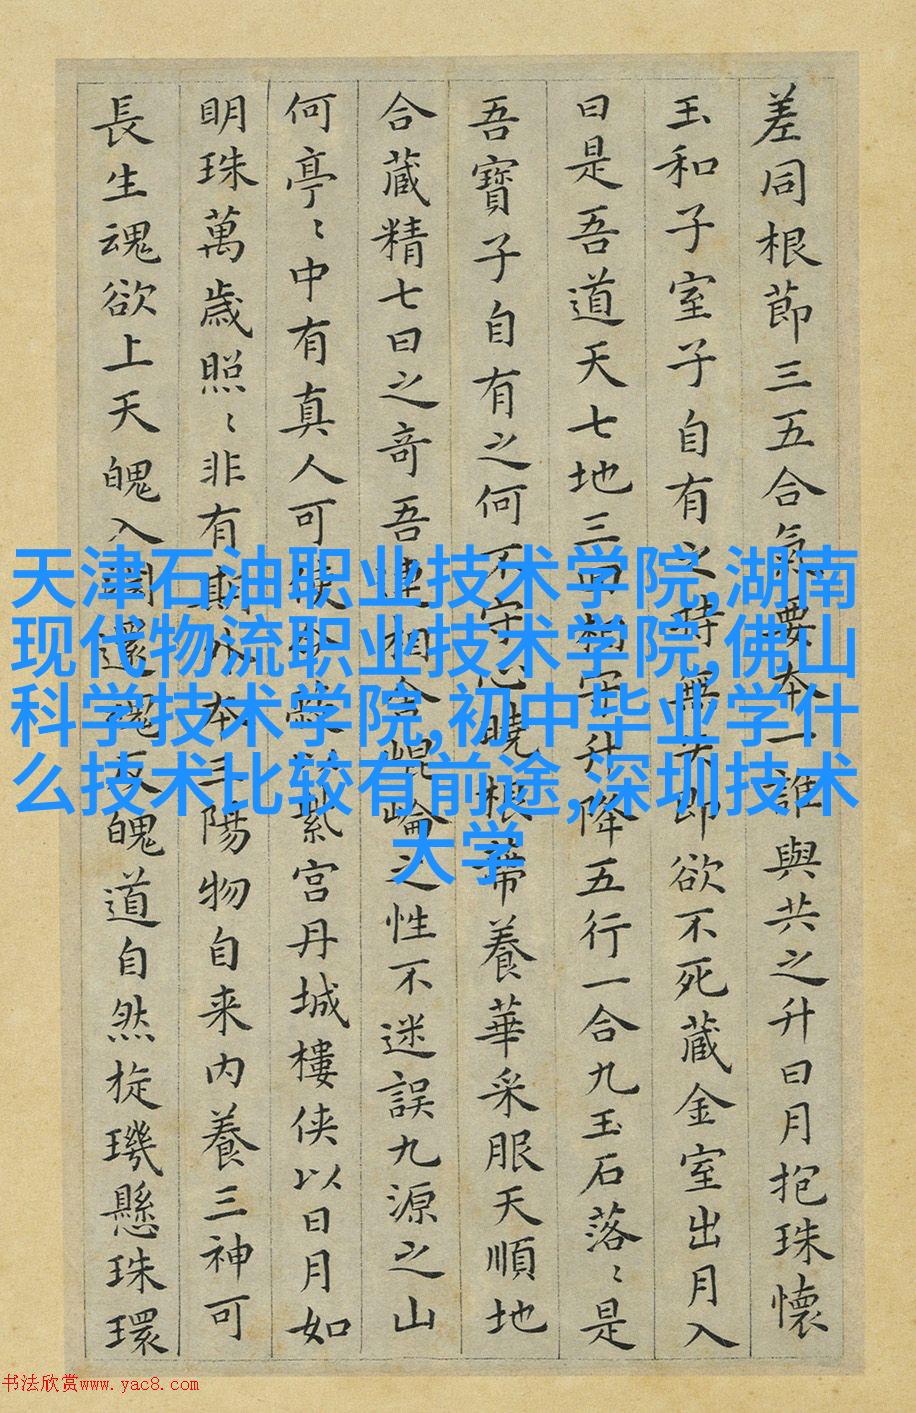 差同根節三五合氣要本一誰與共之升日月抱珠懷
玉和子室子自有之持無失即欲不死藏金室出月入
日是吾道天七地三回相守升降五行一合九玉石落〻是
吾寶子自有之何不守心曉根蒂養華采服天順地
合藏精七日之奇吾連相合崐崘之性不迷誤九源之山
何亭〻中有真人可使令蔽以紫宮丹城樓俠以日月如
明珠萬歲照〻非有期外本三陽物自来内養三神可
長生魂欲上天魄入淵還魂反魄道自然旋璣懸珠環
天津石油职业技术学院,湖南
现代物流职业技术学院,佛山
科学技术学院,初中毕业学什
么技术比较有前途,深圳技术
大学
书法欣赏www.yac8.com